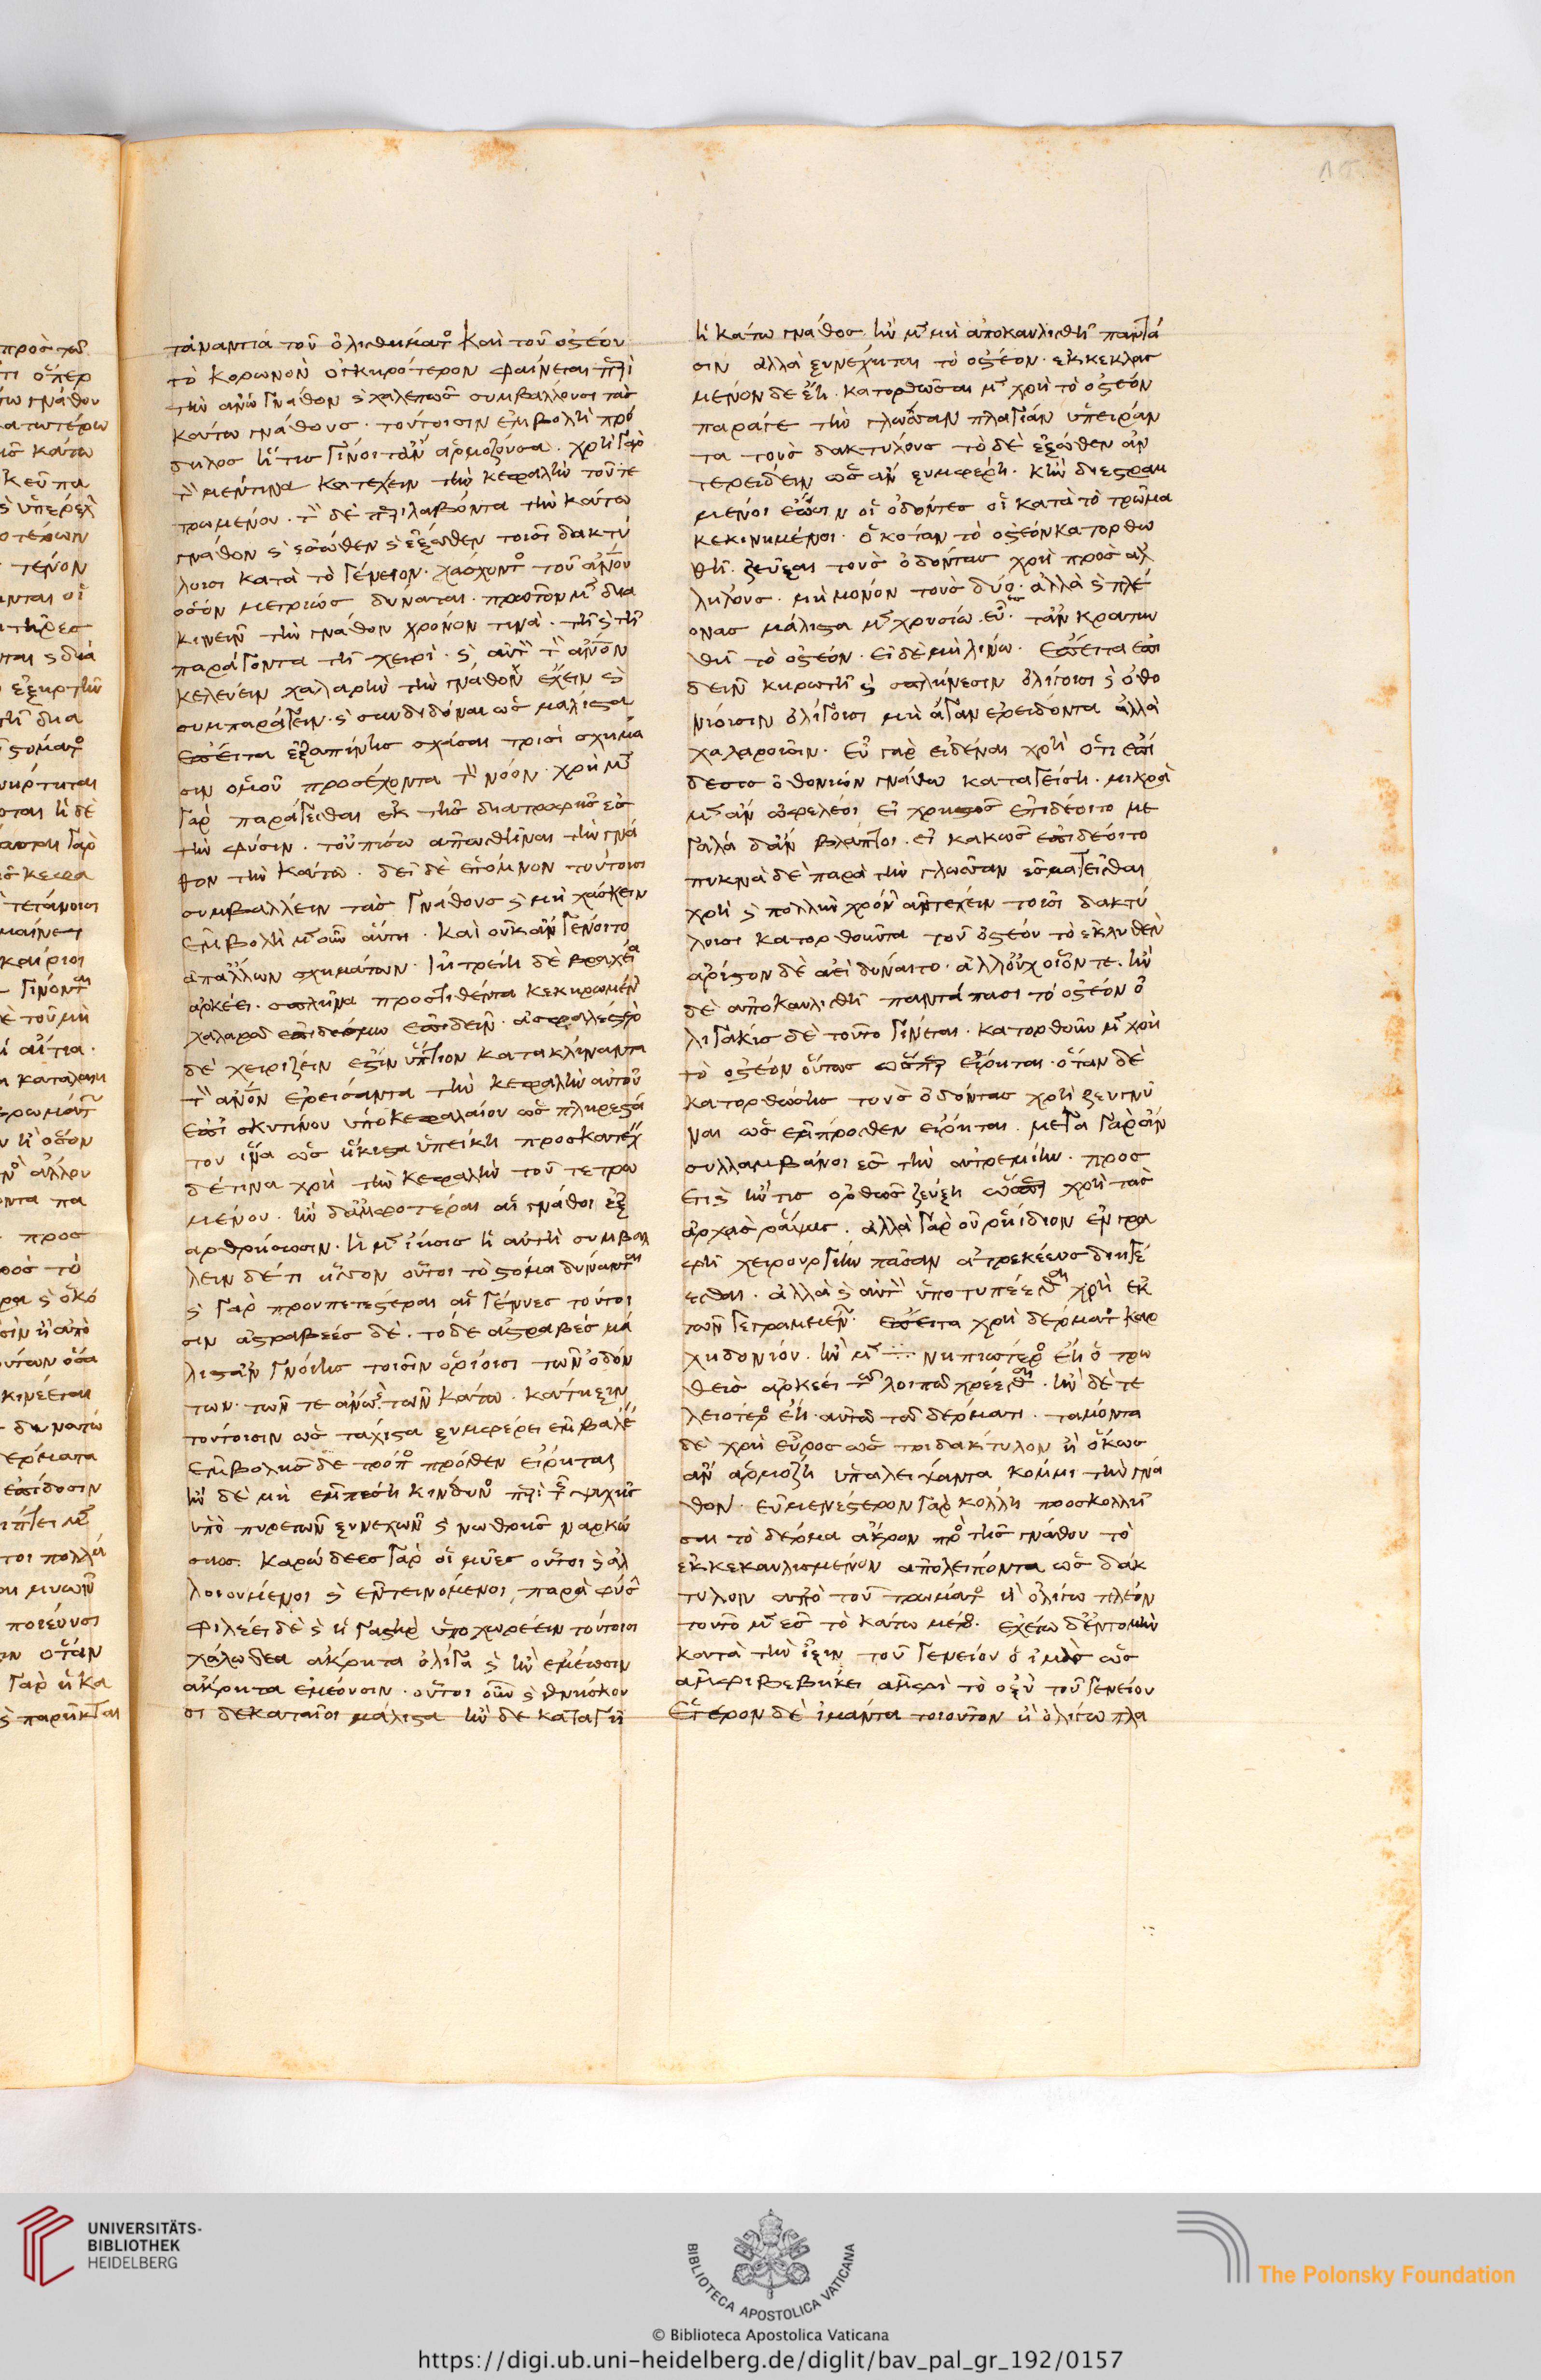 προς
ὅπερ
γνάθου
κατωτέρω
κάτω
τένον
διὰ
ἢ δὲ
γὰρ
τετάνοισι
καίριοι
τοῦ μὴ
αἴτια·
ἢ ὅσον
ἄλλου
προς
κινέεται
δέρματα
ἐπίδοσιν
πολλὰ
ποιεῦσι
ὅταν
γὰρ ἢ κα
παρῆκται
τἀναντία τοῦ ὀλισθήματος καὶ τοῦ ὀστέου
τὸ κορωνὸν ὀχυρότερον φαίνεται περὶ
τὴν ἄνω γνάθον καὶ χαλεπῶς συμβάλλουσι τὰς
κάτω γνάθους· τούτοισιν ἐμβολὴ πρό
δηλος ἥτις γίνοιτ' ἂν ἁρμόζουσα· χρὴ γὰρ
τὸν μέν τινα κατέχειν τὴν κεφαλὴν τοῦ τε
τρωμένου· τὸν δὲ περιλαβόντα τὴν κάτω
γνάθον καὶ ἔσωθεν καὶ ἔξωθεν τοῖσι δακτύ
λοισι κατὰ τὸ γένειον· χάσκοντος τοῦ ἀνθρώπου
ὅσον μετρίως δύναται· πρῶτον μὲν δια
κινεῖν τὴν γνάθον χρόνον τινὰ· τῇ καὶ τῇ
παράγοντα τῇ χειρὶ· καὶ αὐτὸν τὸν ἄνθρωπον
κελεύειν χαλαρὴν τὴν γνάθον ἔχειν καὶ
συμπαράγειν· καὶ συνδιδόναι ὡς μάλιστα
ἔπειτα ἐξαπίνης σχάσαι τρισὶ σχήμα
σιν ὁμοῦ προσέχοντα τὸν νόον· χρὴ μὲν
γὰρ παράγεσθαι ἐκ τῆς διαστροφῆς ἐς
τὴν φύσιν· τοὐπίσω ἀπωσθῆναι τὴν γνά
θον τὴν κάτω· δεῖ δὲ ἑπόμενον τούτοισι
συμβάλλειν τὰς γνάθους καὶ μὴ χάσκειν
ἐμβολὴ μὲν οὖν αὕτη· καὶ οὐκ ἂν γένοιτο
ἀπ' ἄλλων σχημάτων· ἰητρείη δὲ βραχεῖα
ἀρκέει· σπλῆνα προστιθέντα κεκηρωμένον
χαλαρῷ ἐπιδέσμῳ ἐπιδεῖν· ἀσφαλέστερον
δὲ χειρίζειν ἐστὶν ὕπτιον κατακλίναντα
τὸν ἄνθρωπον ἐρείσαντα τὴν κεφαλὴν αὐτοῦ
ἐπὶ σκυτίνου ὑποκεφαλαίου ὡς πληρεστά
του ἵνα ὡς ἥκιστα ὑπείκῃ προσκατέχειν
δέ τινα χρὴ τὴν κεφαλὴν τοῦ τετρω
μένου· ἢν δ' ἀμφότεραι αἱ γνάθοι ἐξ
αρθρήσωσιν· ἡ μὲν ἴησις ἡ αὐτὴ συμβάλ
λειν δέ τι ἧσσον οὗτοι τὸ στόμα δύνανται
καὶ γὰρ προπετέστεραι αἱ γέννες τούτοι
σιν ἀστραβέες δὲ· τὸ δὲ ἀστραβὲς μά
λιστ' ἂν γνοίης τοῖσιν ὁρίοισι τῶν ὀδόν
των· τῶν τε ἄνω καὶ τῶν κάτω· κατ' ἴηξιν
τούτοισιν ὡς τάχιστα ξυμφέρει ἐμβάλλειν
ἐμβολῆς δὲ τρόπος πρόσθεν εἴρηται
ἢν δὲ μὴ ἐμπέσῃ κίνδυνος περὶ τῆς ψυχῆς
ὑπὸ πυρετῶν ξυνεχῶν καὶ νωθρῆς ναρκώ
σιος· καρώδεες γὰρ οἱ μῦες οὗτοι καὶ ἀλ
λοιούμενοι καὶ ἐντεινόμενοι παρὰ φύσιν
φιλέει δὲ καὶ ἡ γαστὴρ ὑποχωρέειν τούτοισι
χολώδεα ἄκρητα ὀλίγα καὶ ἢν ἐμέωσιν
ἄκρητα ἐμέουσιν· οὗτοι οὖν καὶ θνήσκου
σι δεκαταῖοι μάλιστα ἢν δὲ καταγῇ
ἡ κάτω γνάθος· ἢν μὲν μὴ ἀποκαυλισθῇ παντά
σιν ἀλλὰ ξυνέχηται τὸ ὀστέον· ἐκκεκλασ
μένον δὲ ἔῃ· κατορθῶσαι μὲν χρὴ τὸ ὀστέον
παρά γε τὴν γλῶσσαν πλαγίαν ὑπείραν
τα τοὺς δακτύλους τὸ δὲ ἔξωθεν ἀν
τερείδειν ὡς ἂν ξυμφέρῃ· κἢν διεστραμ
μένοι ἔωσιν οἱ ὀδόντες οἱ κατὰ τὸ τρῶμα
κεκινημένοι· ὁκόταν τὸ ὀστέον κατορθω
θῇ· ζεῦξαι τοὺς ὀδόντας χρὴ πρὸς ἀλ
λήλους· μὴ μόνον τοὺς δύο· ἀλλὰ καὶ πλέ
ονας μάλιστα μὲν χρυσίῳ ἔστ' ἂν κρατυν
θῇ τὸ ὀστέον· εἰ δὲ μὴ λίνῳ· ἔπειτα ἐπι
δεῖν κηρωτῇ καὶ σπλήνεσιν ὀλίγοισι καὶ ὀθο
νίοισιν ὀλίγοισι μὴ ἄγαν ἐρείδοντα ἀλλὰ
χαλαροῖσιν· εὖ γὰρ εἰδέναι χρὴ ὅτι ἐπί
δεσις ὀθονίων γνάθῳ καταγείσῃ· μικρὰ
μὲν ἂν ὠφελέοι εἰ χρηστῶς ἐπιδέοιτο με
γάλα δ' ἂν βλάπτοι· εἰ κακῶς ἐπιδέοιτο
πυκνὰ δὲ παρὰ τὴν γλῶσσαν ἐσματεῖσθαι
χρὴ καὶ πολλὸν χρόνον ἀντέχειν τοῖσι δακτύ
λοισι κατορθοῦντα τοῦ ὀστέου τὸ ἐκλιθὲν
ἄριστον δὲ ἀεὶ δύναιτο· ἀλλ' οὐχ οἷόν τε· ἢν
δὲ ἀποκαυλισθῇ παντάπασι τὸ ὀστέον ὀ
λιγάκις δὲ τοῦτο γίνεται· κατορθοῦν μὲν χρὴ
τὸ ὀστέον οὕτως ὥσπερ εἴρηται· ὅταν δὲ
κατορθώσῃς τοὺς ὀδόντας χρὴ ζευγνύ
ναι ὡς ἔμπροσθεν εἴρηται· μέγα γὰρ ἂν
συλλαμβάνοι ἐς τὴν ἀτρεμίην· προς
έτι καὶ ἤν τις ὀρθῶς ζεύξῃ ὥσπερ χρὴ τὰς
ἀρχὰς ῥάψας· ἀλλὰ γὰρ οὐ ῥηΐδιον ἐν γρα
φῇ χειρουργίην πᾶσαν ἀτρεκέως διηγέ
εσθαι· ἀλλὰ καὶ αὐτὸν ὑποτοπέεσθαι χρὴ ἐκ
τῶν γεγραμμένων· ἔπειτα χρὴ δέρματος καρ
χηδονίου· ἢν μὲν νηπιώτερος ἔῃ ὁ τρω
θεὶς ἀρκέει τῷ λοιπῷ χρέεσθαι· ἢν δὲ τε
λειότερος ἔῃ· αὐτῷ τῷ δέρματι· ταμόντα
δὲ χρὴ εὖρος ὡς τριδάκτυλον ἢ ὅκως
ἂν ἁρμόζῃ ὑπαλείψαντα κόμμι τὴν γνά
θον· εὐμενέστερον γὰρ κόλλῃ προσκολλῆ
σαι τὸ δέρμα ἄκρον πρὸς τῆς γνάθου τὸ
ἐκκεκαυλισμένον ἀπολείποντα ὡς δάκ
τυλον ἀπὸ τοῦ τρώματος ἢ ὀλίγῳ πλέον
τοῦτο μὲν ἐς τὸ κάτω μέρος· ἐχέτω δ' ἐντομὴν
κατὰ τὴν ἴξιν τοῦ γενείου ὁ ἱμὰς ὡς
ἀμφιβεβήκει ἀμφὶ τὸ ὀξὺ τοῦ γενείου
ἕτερον δὲ ἱμάντα τοιοῦτον ἢ ὀλίγῳ πλα
UNIVERSITÄTS-
BIBLIOTHEK
HEIDELBERG
BIBLIOTECA APOSTOLICA VATICANA
© Biblioteca Apostolica Vaticana
The Polonsky Foundation
https://digi.ub.uni-heidelberg.de/diglit/bav_pal_gr_192/0157